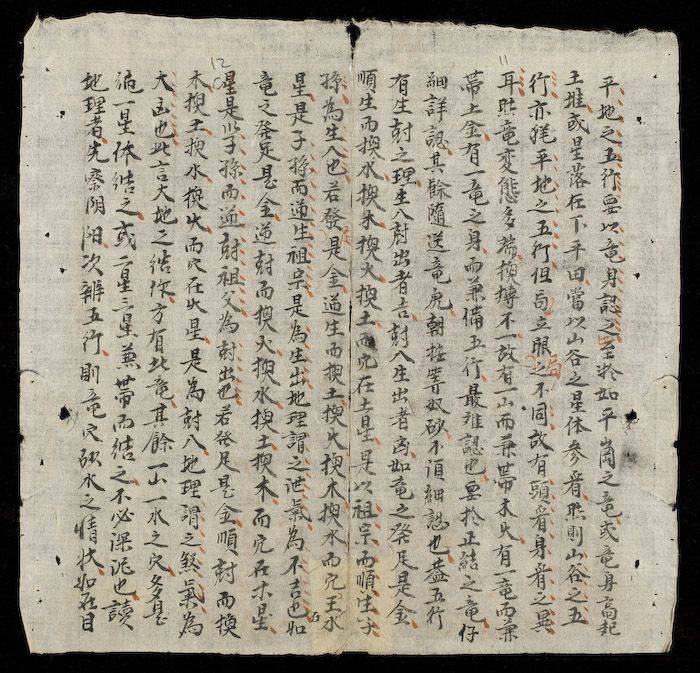 11
平地之五行要以竜身認之至於如平崗之竜或竜身高起
土堆或星落在下平田當以山谷之星体參看然則山谷之五
行亦猶平地之五行但局立眼之不同故有頭看身看之異
耳然竜變態多端換轉不一故有一山而兼帶木火有一竜而兼
帶土金有一竜之身而兼備五行最难認也要於正結之竜仔
細詳認其餘隨送竜虎朝按等奴砂不須細認也蓋五行
有生尅之理生入尅出者吉尅入生出者凶如竜之發足是金
順生而換水換木換火換土而穴在土星是以祖宗而順生子
孫為生入也若發足是金逆生而換土換火換木換水而穴王水
星是子孫而逆生祖宗是為生出地理謂之泄氣為不吉也如
竜之發足是金逆尅而換火換水換土換木而穴在木星
12
星是以子孫而逆尅祖父為尅出也若發足是金順尅而換
木換土換水換火而穴在火星是為尅入地理謂之煞氣為
大凶也此言大地之結作方有此竜其餘一山一水之穴多是
編一星体結之或二星三星兼帶而結之不必深泥也讀
地理者先察阴阳次辨五行則竜穴砂水之情状如在目